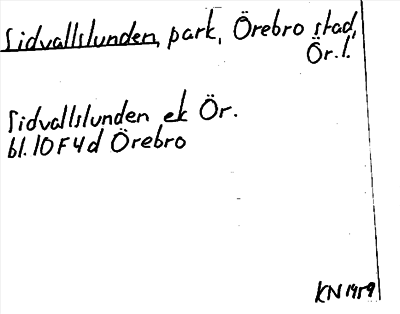 Sidvallslunden, park, Örebro stad,
Ör. l.
Sidvallslunden ek Ör.
bl. 10F4d Örebro
KN 1959